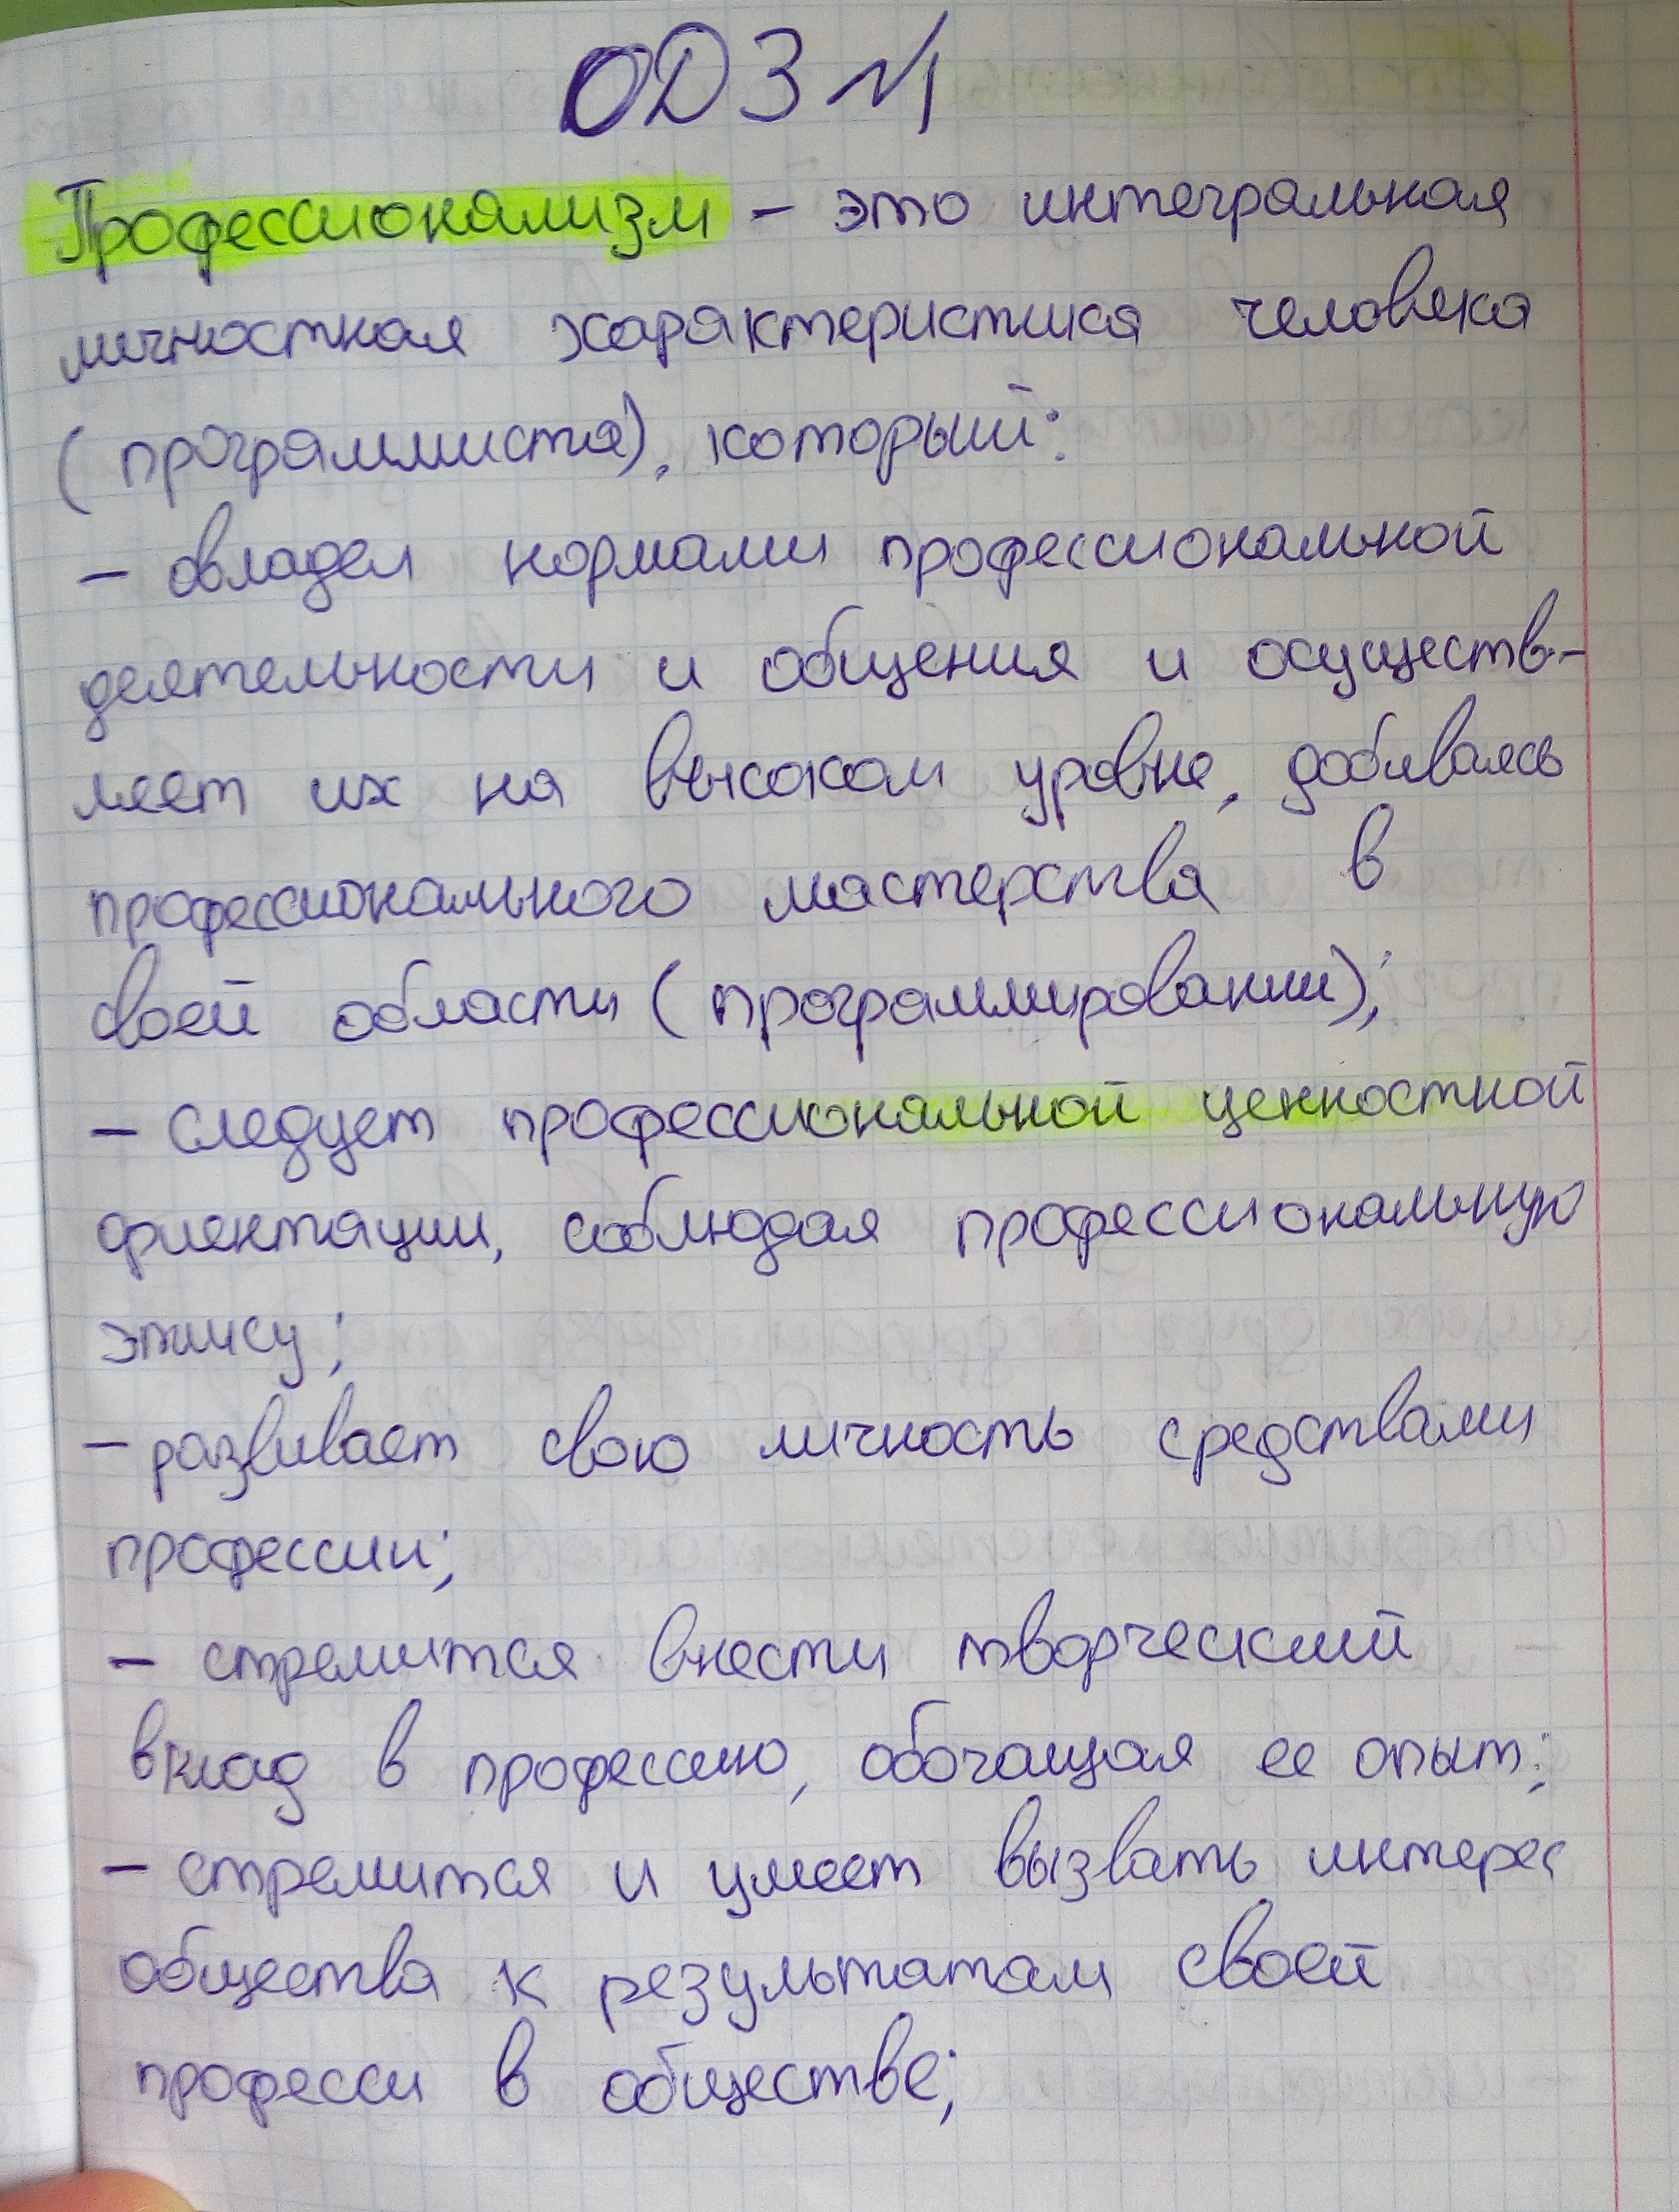 ОДЗ №1
Профессионализм – это интегральная
личностная характеристика человека
(программиста), который:
– овладел нормами профессиональной
деятельности и общения и осуществ-
ляет их на высоком уровне, добиваясь
профессионального мастерства в
своей области (программировании);
– следует профессиональной ценностной
ориентации, соблюдая профессиональную
этику;
– развивает свою личность средствами
профессии;
– стремится внести творческий
вклад в профессию, обогащая ее опыт;
– стремится и умеет вызвать интерес
общества к результатам своей
професси в обществе;